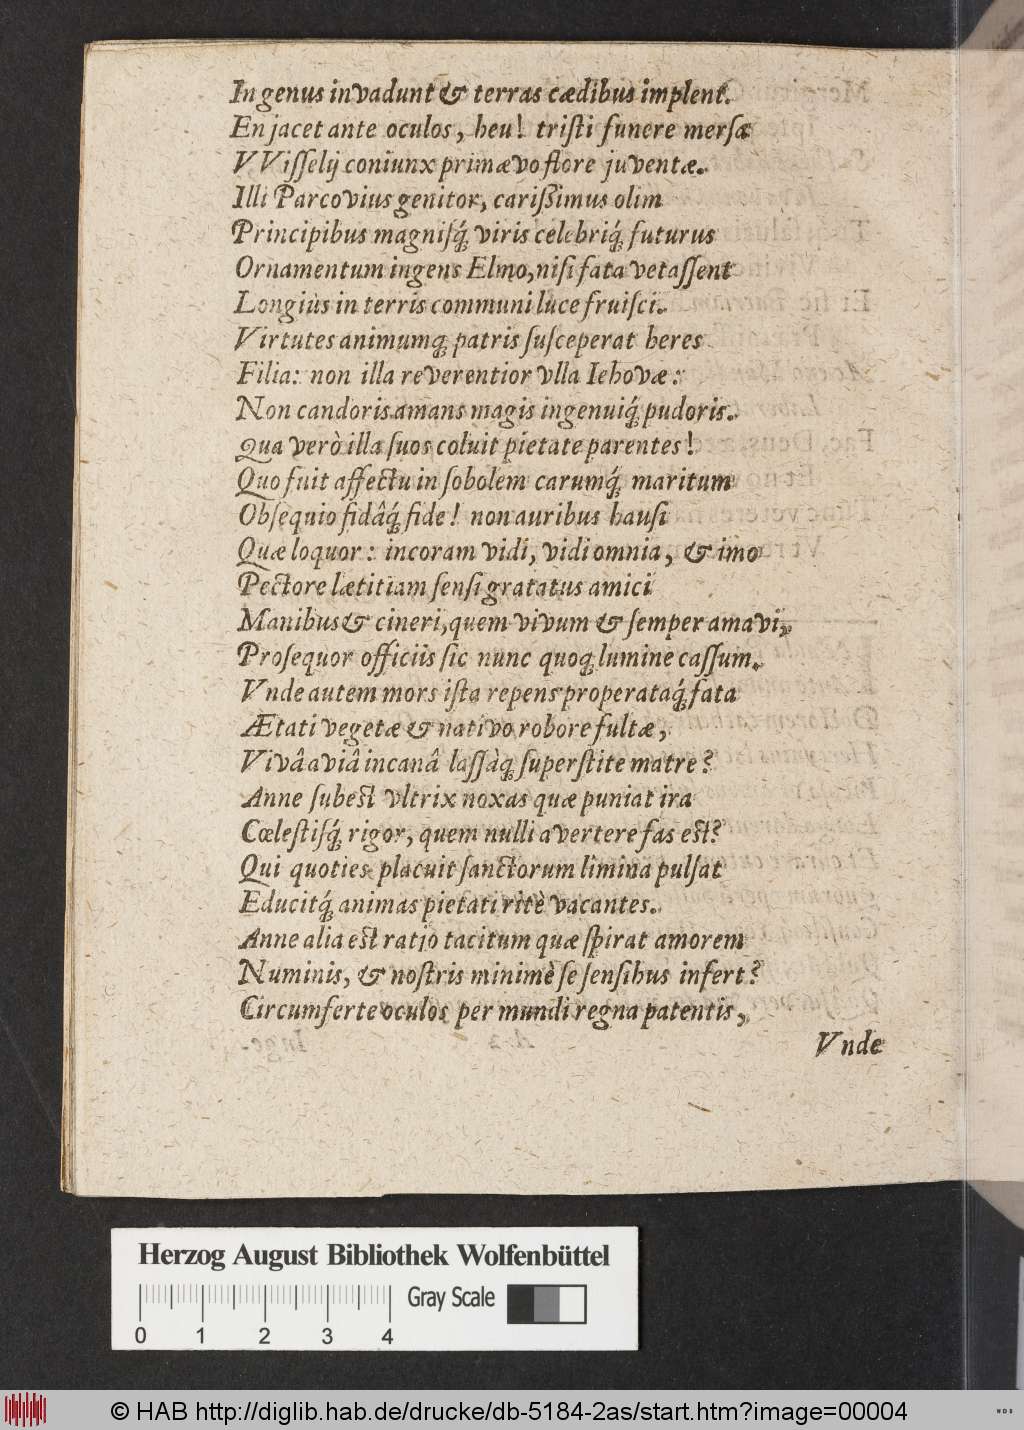 In genus invadunt & terras cædibus implent.
En jacet ante oculos, heu! tristi funere mersæ
VVisselij coniunx primævo flore juventæ.
Illi Parcovius genitor, carißimus olim
Principibus magnisq́; viris celebriq́; futurus
Ornamentum ingens Elmo, nisi fata vetassent
Longiùs in terris communi luce fruisci.
Virtutes animumq; patris susceperat heres
Filia: non illa reverentior vlla Iehovæ:
Non candoris amans magis ingenuiq́; pudoris.
Qua verò illa suos coluit pietate parentes!
Quo fuit affectu in sobolem carumq́; maritum
Obsequio fidâq́; fide! non auribus hausi
Quæ loquor: in coram vidi, vidi omnia, & imo
Pectore lætitiam sensi gratatus amici
Manibus & cineri, quem vivum & semper amavi,
Prosequor officiis sic nunc quoq; lumine cassum.
Vnde autem mors ista repens properataq́; fata
Ætati vegetæ & nativo robore fultæ,
Vivâ aviâ incanâ lassàq; superstite matre?
Anne subest vltrix noxas quæ puniat ira
Cœlestisq́; rigor, quem nulli avertere fas est?
Qui quoties placuit sanctorum limina pulsat
Educitq́; animas pietati ritè vacantes.
Anne alia est ratio tacitum quæ spirat amorem
Numinis, & nostris minimè se sensibus infert?
Circumferte oculos per mundi regna patentis,
Vnde
Herzog August Bibliothek Wolfenbüttel
Gray Scale
0 1 2 3 4
© HAB http://diglib.hab.de/drucke/db-5184-2as/start.htm?image=00004